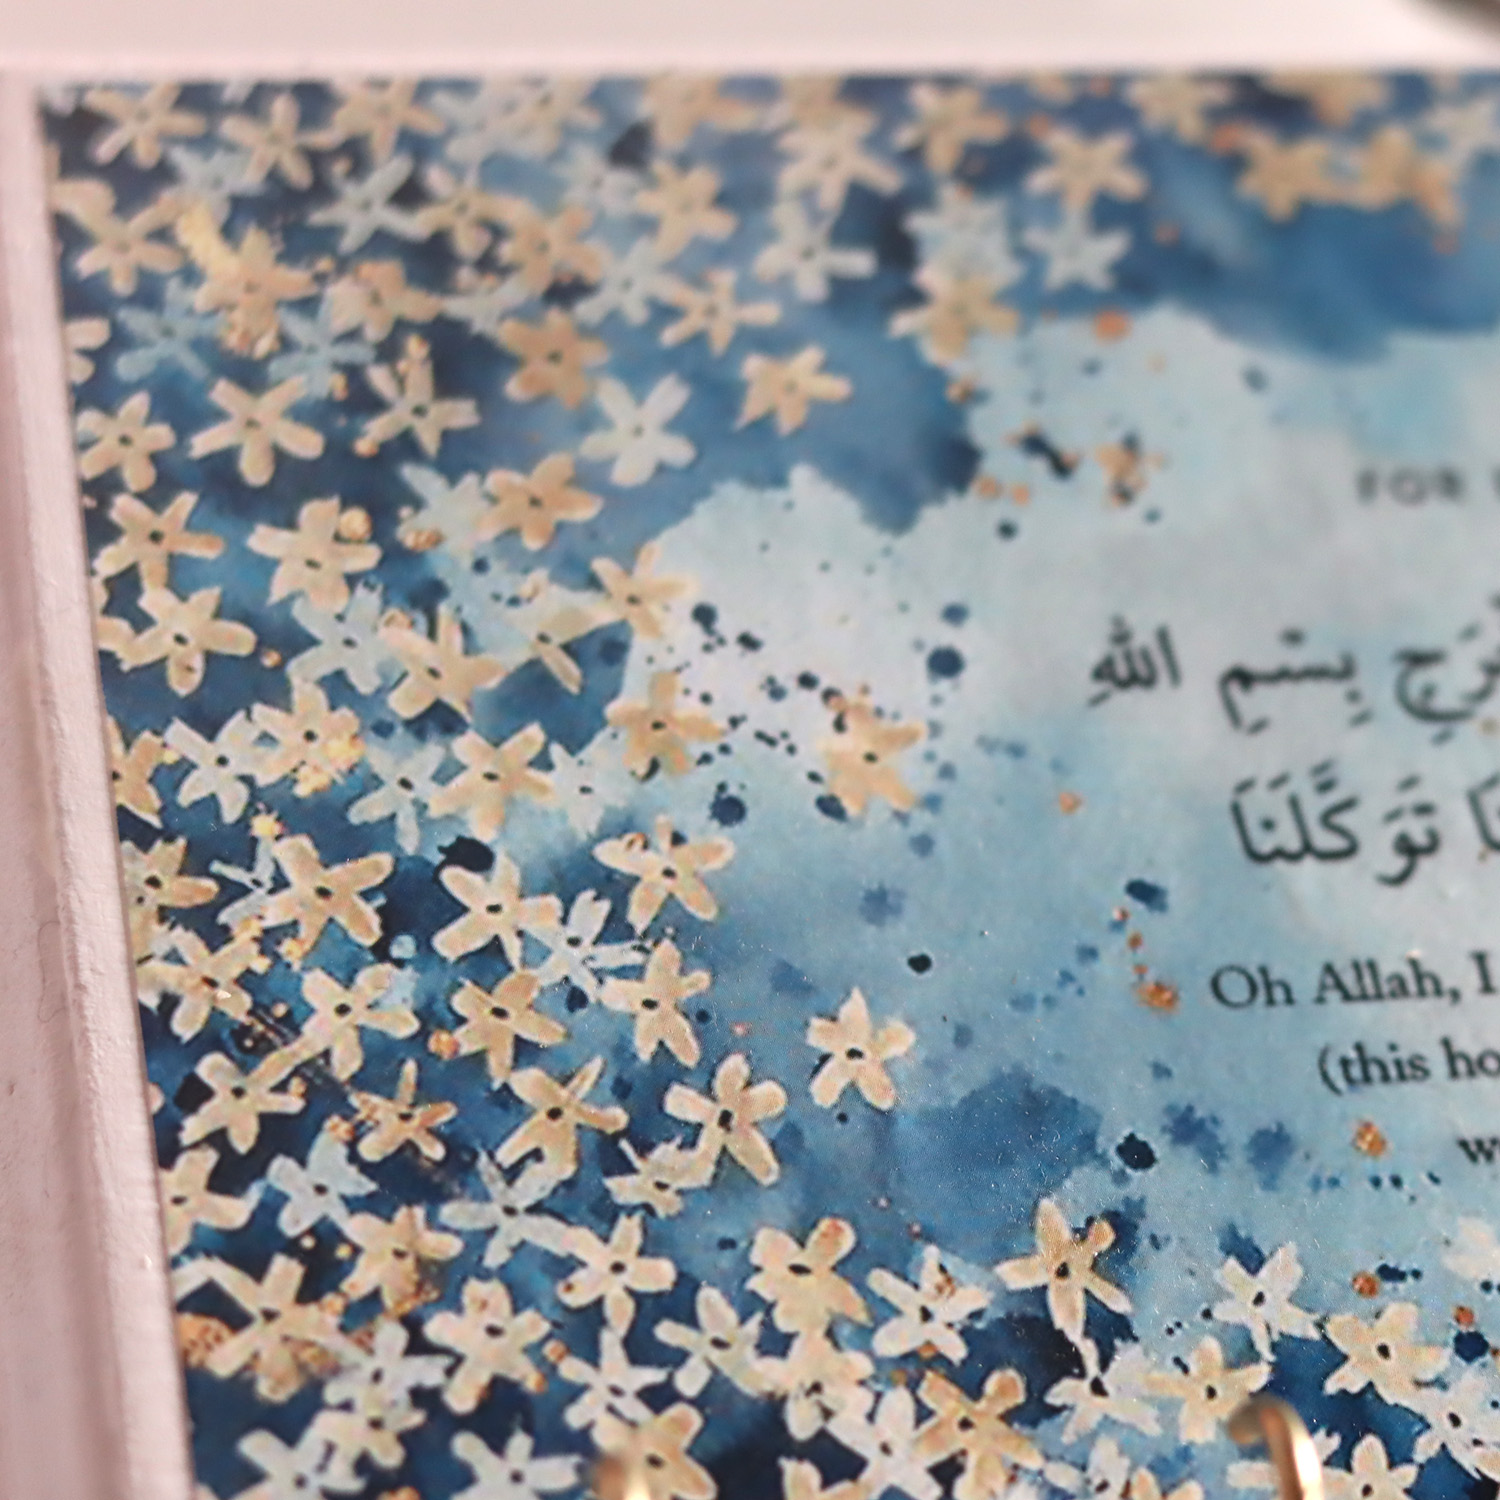 FOR
ـرَجِ بِسْمِ اللهِ
ـنَا تَوَكَّلْنَا
Oh Allah, I
(this ho
w